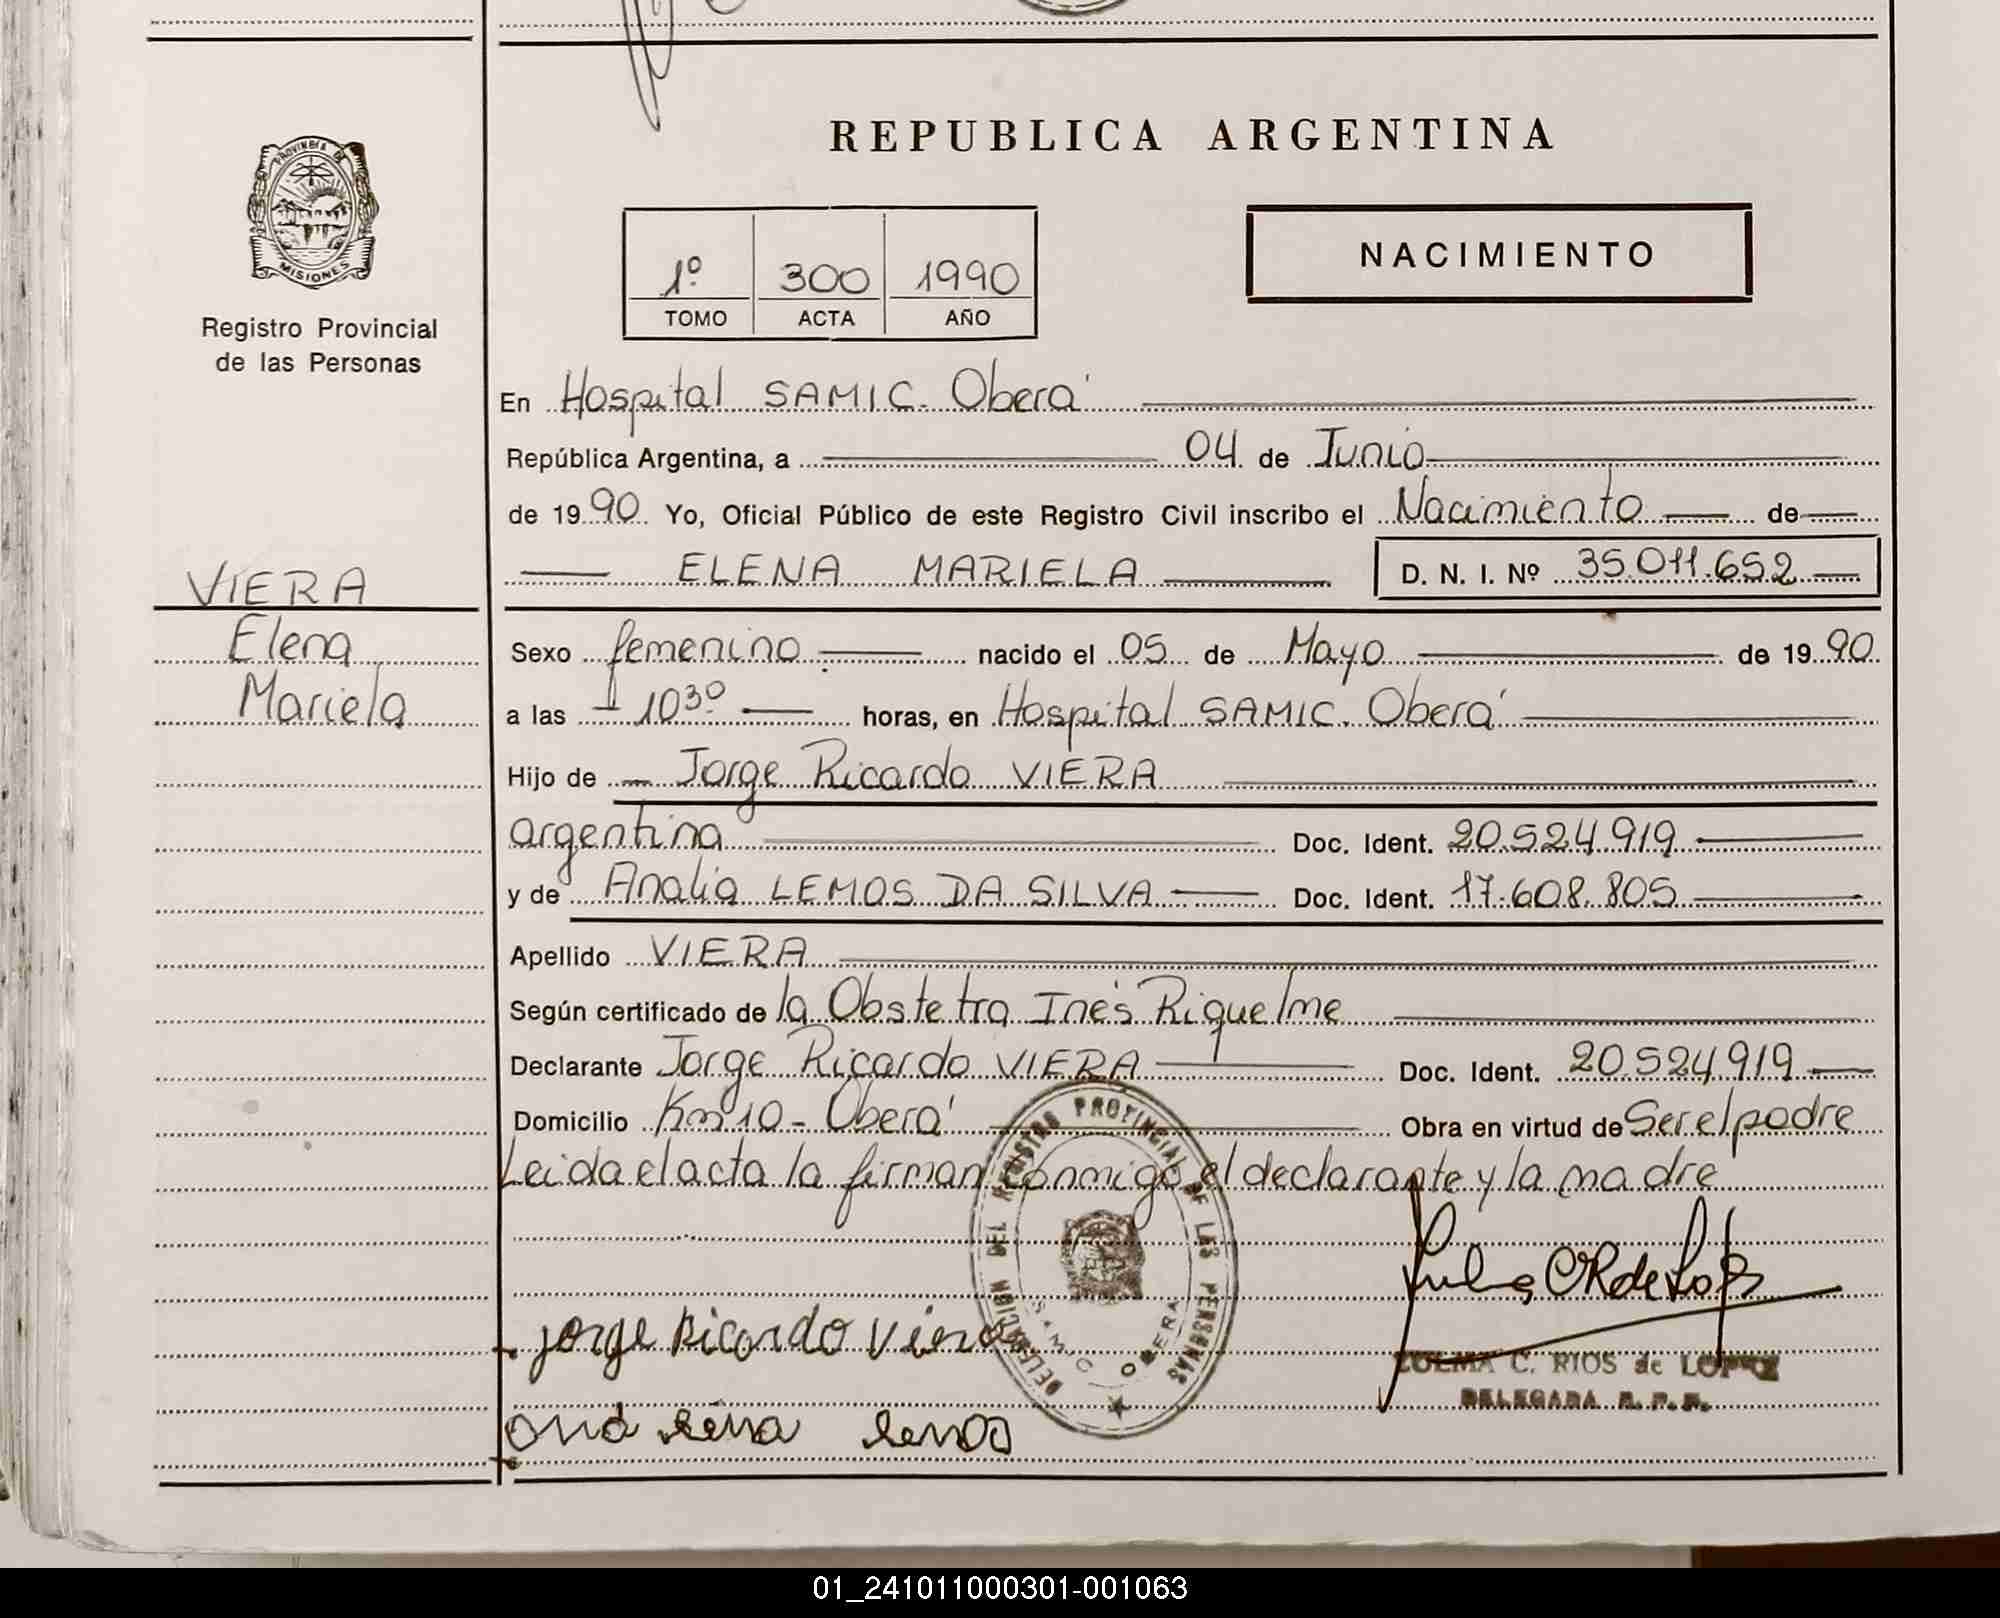 PROVINCIA DE
MISIONES
Registro Provincial
de las Personas
VIERA
Elena
Mariela
REPUBLICA ARGENTINA
1º 300 1990
TOMO ACTA AÑO
NACIMIENTO
En Hospital SAMIC. Oberá
República Argentina, a 04 de Junio
de 1990 Yo, Oficial Público de este Registro Civil inscribo el Nacimiento de
ELENA MARIELA D. N. I. Nº 35.011.652
Sexo femenino nacido el 05 de Mayo de 1990
a las 10³⁰ horas, en Hospital SAMIC. Oberá
Hijo de Jorge Ricardo VIERA
argentina Doc. Ident. 20.524.919
y de Analia LEMOS DA SILVA Doc. Ident. 17.608.805
Apellido VIERA
Según certificado de la Obstetra Inés Riquelme
Declarante Jorge Ricardo VIERA Doc. Ident. 20.524.919
Domicilio Km 10 - Oberá Obra en virtud de Ser el padre
Leida el acta la firman conmigo el declarante y la madre
DELEGACION DEL REGISTRO PROVINCIAL DE LAS PERSONAS
SAMIC OBERA
Jorge Ricardo Viera
ZULMA C. RIOS de LOPEZ
DELEGADA R. P. P.
01_241011000301-001063